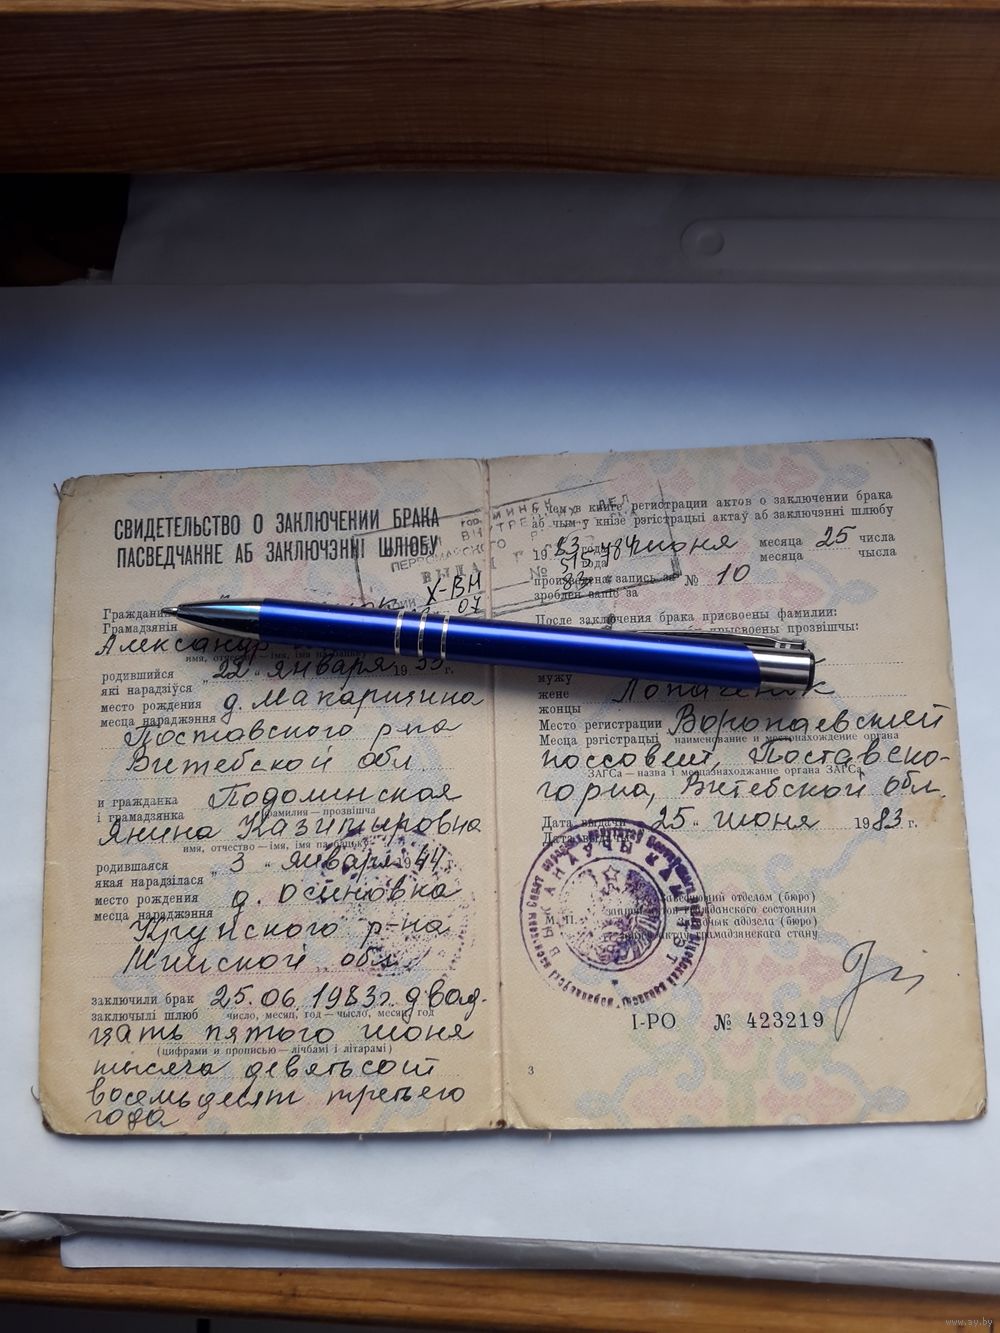 СВИДЕТЕЛЬСТВО О ЗАКЛЮЧЕНИИ БРАКА
ПАСВЕДЧАННЕ АБ ЗАКЛЮЧЭННІ ШЛЮБУ
МИНСК
ВЫДАН №
X-ВН
07
Гражданин
Грамадзянін
Александр
имя, отчество — імя, імя па бацьку
родившийся „22“ января 19 г.
які нарадзіўся
место рождения д. Макарщина
месца нараджэння
Поставского р-на
Витебской обл
и гражданка Подолинская
і грамадзянка фамилия — прозвішча
Янина Казимировна
имя, отчество — імя, імя па бацьку
родившаяся „3“ января 1944
якая нарадзілася
место рождения д. Осиновка
месца нараджэння
Крупского р-на
Минской обл
заключили брак 25.06.1983г. двад-
заключылі шлюб число, месяц, год — чысло, месяц, год
цать пятого июня
(цифрами и прописью — лічбамі і літарамі)
тысяча девятьсот
восемьдесят третьего
года
о чем в книге регистрации актов о заключении брака
аб чым у кнізе рэгістрацыі актаў аб заключэнні шлюбу
19 83 года июня месяца 25 числа
года месяца чысла
произведена запись за № 10
зроблен запіс за
После заключения брака присвоены фамилии:
прысвоены прозвішчы:
мужу
жене Лопаченок
жонцы
Место регистрации Воропаевский
Месца рэгістрацыі наименование и местонахождение органа
поссовет, Поставско-
ЗАГСа — назва і месцазнаходжанне органа ЗАГСа
го р-на, Витебской обл.
Дата выдачи „25“ июня 1983 г.
Дата выдачы
М. П.
Заведующий отделом (бюро)
записи актов гражданского состояния
Загадчык аддзела (бюро)
запісу актаў грамадзянскага стану
ВЫКАНАЎЧЫ КАМІТЭТ
I-РО № 423219
3
www.ay.by